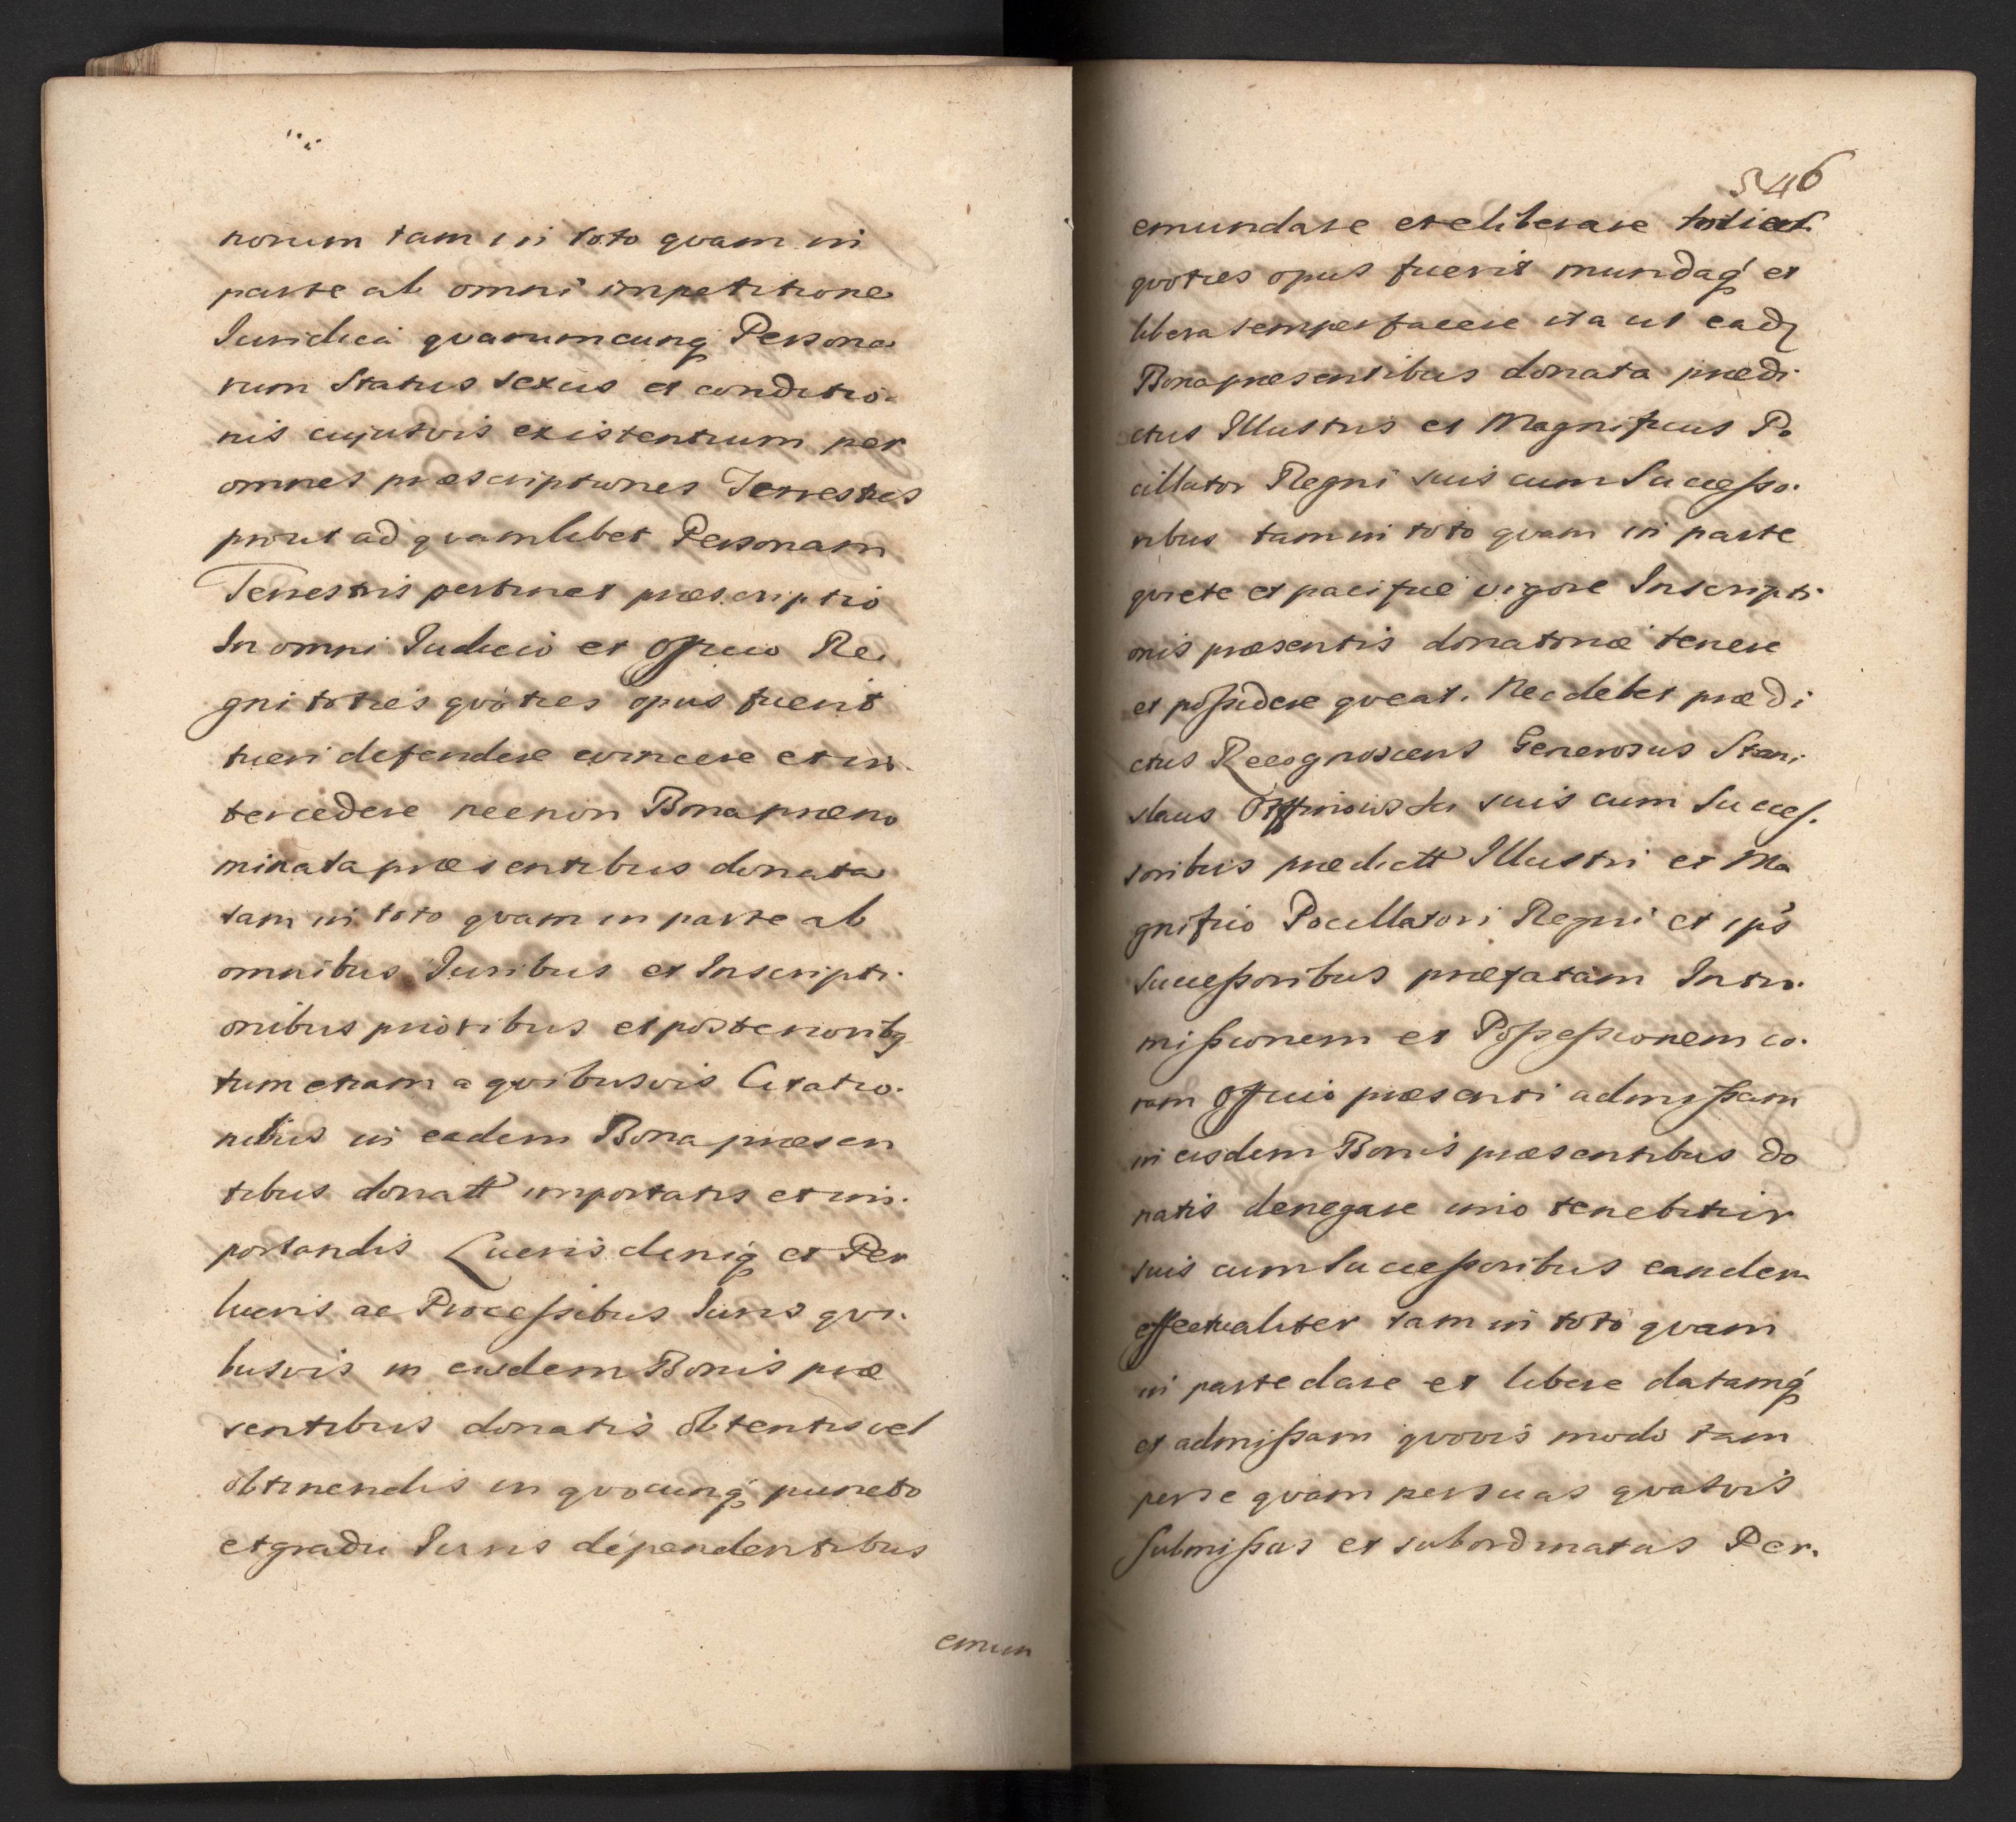 norum tam in toto quam in
parte ab omni impetitione
Iuridica quarumcunq Persona
rum Status sexus et conditio
nis cujusvis existentium per
omnes præscriptiones Terrestres
prout ad quamlibet Personam
Terrestris pertinet præscriptio
In omni Iudicio et Officio Re
gni toties quoties opus fuerit
tueri defendere evincere et in
tercedere necnon Bona præno
minata præsentibus donata
tam in toto quam in parte ab
omnibus Iuribus et Inscripti
onibus prioribus et posterioribq
tum etiam a quibusvis Citatio
nibus in eadem Bona præsen
tibus donatt importatis et im
portandis Lucris deniq et Per
lucris ac Processibus Iuris qui
busvis in eisdem Bonis præ
sentibus donatis obtentis vel
obtinendis in quocunq puncto
et gradu Iuris dependentibus
emun
546
emundare et eliberare toties
quoties opus fuerit mundaq et
libera semper facere ita ut eadq
Bona præsentibus donata prædi
ctus Illustris et Magnificus Po
cillator Regni suis cum Successo
ribus tam in toto quam in parte
quiete et pacifice vigore Inscripti
onis præsentis donatoriæ tenere
et possidere queat. Nec debet prædi
ctus Recognoscens Generosus Stani
slaus suis cum Succes
soribus prædictt Illustri et Ma
gnifico Pocillatori Regni et ips
Successoribus præfatam Intro
missionem et Possessionem co
ram Officio præsenti admissam
in eisdem Bonis præsentibus do
natis denegare imo tenebitur
suis cum Successoribus eandem
effectualiter tam in toto quam
in parte dare et libere datamq
et admissam quovis modo tam
per se quam per suas quasvis
Submissas et subordinatas Per